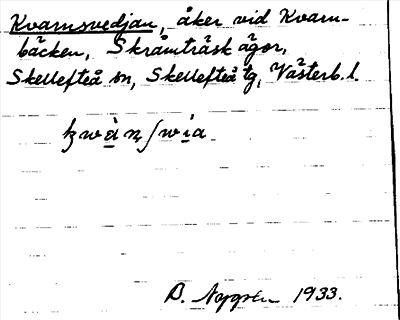 Kvarnsvedjan, åker vid Kvarn-
bäcken, Skråmträsk ägor,
Skellefteå sn, Skellefteå tg, Västerb. l.
B. Nygren 1933.